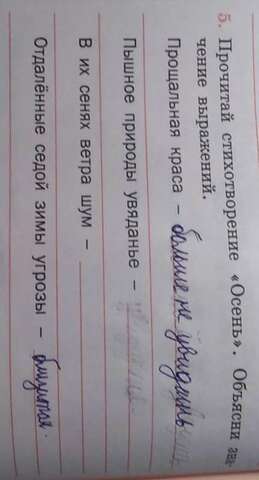 5. Прочитай стихотворение «Осень». Объясни зна-
чение выражений.
Прощальная краса – больше не увидишь
Пышное природы увяданье –
В их сенях ветра шум –
Отдалённые седой зимы угрозы –